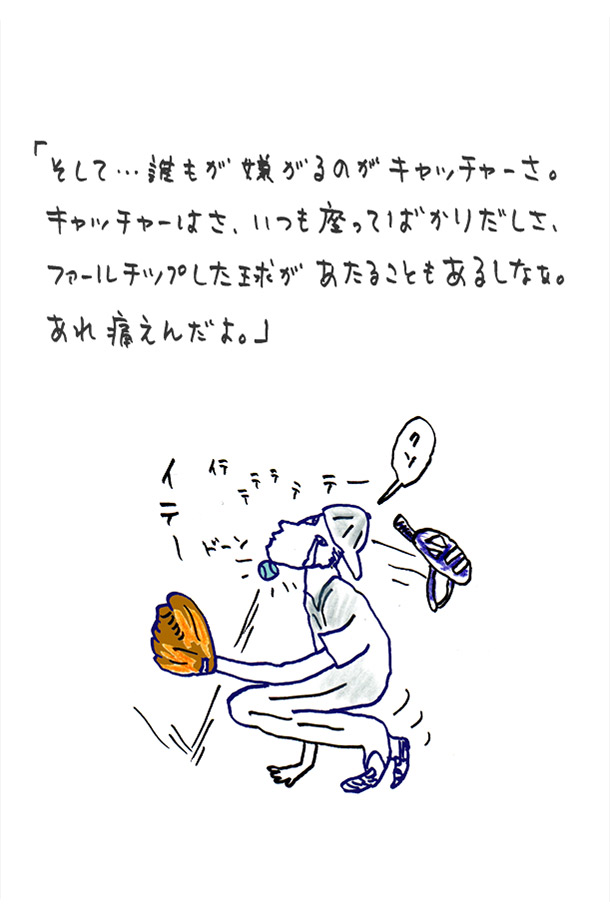 「そして…誰もが嫌がるのがキャッチャーさ。
キャッチャーはさ、いつも座ってばかりだしさ、
ファールチップした球があたることもあるしなぁ。
あれ痛えんだよ。」
クソ
イテテテテテテー
イテー
ドーン